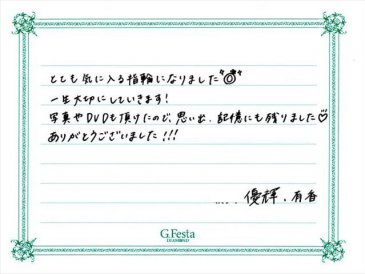 とても気に入る指輪になりました
一生大切にしていきます!
写真やDVDも頂けたので、思い出、記憶にも残りました♡
ありがとうございました!!!
優輝、有香
G.Festa
DIAMOND